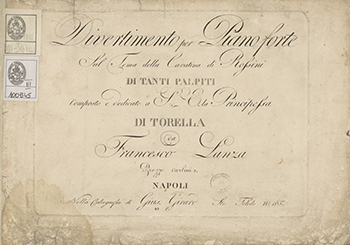 Divertimento per Piano forte
Sul Tema della Cavatina di Rossini
DI TANTI PALPITI
Composto e dedicato a S. E. la Principessa
DI TORELLA
da
Francesco Lanza
Prezzo
NAPOLI
Nella Calcografia di Gius. Girard
100645